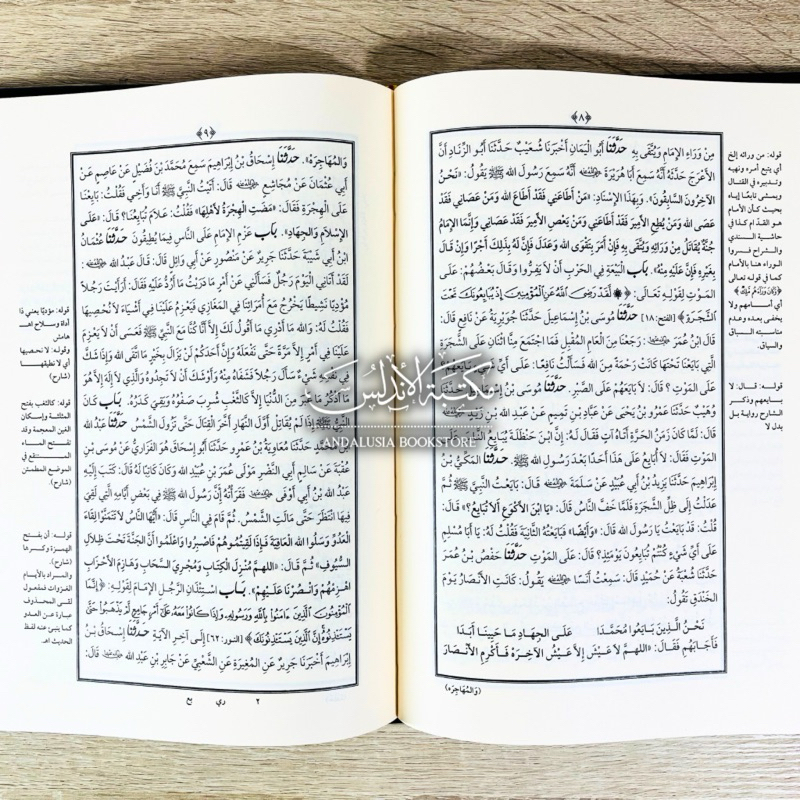 ﴿٨﴾
مِنْ وَرَاءِ الإِمَامِ وَيُتَّقَى بِهِ حَدَّثَنَا أَبُو الْيَمَانِ أَخْبَرَنَا شُعَيْبٌ حَدَّثَنَا أَبُو الزِّنَادِ أَنَّ
الأَعْرَجَ حَدَّثَهُ أَنَّهُ سَمِعَ أَبَا هُرَيْرَةَ أَنَّهُ سَمِعَ رَسُولَ اللهِ ﷺ يَقُولُ: «نَحْنُ
الآخِرُونَ السَّابِقُونَ». وَبِهَذَا الإِسْنَادِ: «مَنْ أَطَاعَنِي فَقَدْ أَطَاعَ اللهَ وَمَنْ عَصَانِي فَقَدْ
عَصَى اللهَ وَمَنْ يُطِعِ الأَمِيرَ فَقَدْ أَطَاعَنِي وَمَنْ يَعْصِ الأَمِيرَ فَقَدْ عَصَانِي وَإِنَّمَا الإِمَامُ
جُنَّةٌ يُقَاتَلُ مِنْ وَرَائِهِ وَيُتَّقَى بِهِ فَإِنْ أَمَرَ بِتَقْوَى اللهِ وَعَدَلَ فَإِنَّ لَهُ بِذَلِكَ أَجْرًا وَإِنْ قَالَ
بِغَيْرِهِ فَإِنَّ عَلَيْهِ مِنْهُ». بَابُ الْبَيْعَةِ فِي الْحَرْبِ أَنْ لَا يَفِرُّوا وَقَالَ بَعْضُهُمْ: عَلَى
الْمَوْتِ لِقَوْلِهِ تَعَالَى: ﴿لَقَدْ رَضِيَ اللَّهُ عَنِ الْمُؤْمِنِينَ إِذْ يُبَايِعُونَكَ تَحْتَ
الشَّجَرَةِ﴾ [الفتح: ١٨] حَدَّثَنَا مُوسَى بْنُ إِسْمَاعِيلَ حَدَّثَنَا جُوَيْرِيَةُ عَنْ نَافِعٍ قَالَ:
قَالَ ابْنُ عُمَرَ: رَجَعْنَا مِنَ الْعَامِ الْمُقْبِلِ فَمَا اجْتَمَعَ مِنَّا اثْنَانِ عَلَى الشَّجَرَةِ
الَّتِي بَايَعْنَا تَحْتَهَا كَانَتْ رَحْمَةً مِنَ اللهِ فَسَأَلْتُ نَافِعًا: عَلَى أَيِّ شَيْءٍ بَايَعَهُمْ
عَلَى الْمَوْتِ؟ قَالَ: لَا بَايَعَهُمْ عَلَى الصَّبْرِ. حَدَّثَنَا مُوسَى بْنُ إِسْمَاعِيلَ
وُهَيْبٌ حَدَّثَنَا عَمْرُو بْنُ يَحْيَى عَنْ عَبَّادِ بْنِ تَمِيمٍ عَنْ عَبْدِ اللهِ بْنِ زَيْدٍ
قَالَ: لَمَّا كَانَ زَمَنُ الْحَرَّةِ أَتَاهُ آتٍ فَقَالَ لَهُ: إِنَّ ابْنَ حَنْظَلَةَ يُبَايِعُ النَّاسَ عَلَى
الْمَوْتِ فَقَالَ: لَا أُبَايِعُ عَلَى هَذَا أَحَدًا بَعْدَ رَسُولِ اللهِ ﷺ. حَدَّثَنَا الْمَكِّيُّ بْنُ
إِبْرَاهِيمَ حَدَّثَنَا يَزِيدُ بْنُ أَبِي عُبَيْدٍ عَنْ سَلَمَةَ قَالَ: بَايَعْتُ النَّبِيَّ ﷺ ثُمَّ
عَدَلْتُ إِلَى ظِلِّ الشَّجَرَةِ فَلَمَّا خَفَّ النَّاسُ قَالَ: «يَا ابْنَ الأَكْوَعِ أَلَا تُبَايِعُ؟» قَالَ:
قُلْتُ: قَدْ بَايَعْتُ يَا رَسُولَ اللهِ قَالَ: «وَأَيْضًا» فَبَايَعْتُهُ الثَّانِيَةَ فَقُلْتُ لَهُ: يَا أَبَا مُسْلِمٍ
عَلَى أَيِّ شَيْءٍ كُنْتُمْ تُبَايِعُونَ يَوْمَئِذٍ؟ قَالَ: عَلَى الْمَوْتِ حَدَّثَنَا حَفْصُ بْنُ عُمَرَ
حَدَّثَنَا شُعْبَةُ عَنْ حُمَيْدٍ قَالَ: سَمِعْتُ أَنَسًا يَقُولُ: كَانَتِ الأَنْصَارُ يَوْمَ
الْخَنْدَقِ تَقُولُ:
نَحْنُ الَّذِينَ بَايَعُوا مُحَمَّدَا عَلَى الْجِهَادِ مَا حَيِينَا أَبَدَا
فَأَجَابَهُمْ فَقَالَ: «اللهم لَا عَيْشَ إِلَّا عَيْشُ الآخِرَهْ فَأَكْرِمِ الأَنْصَارَ
(وَالْمُهَاجِرَهْ)
قوله: من ورائه إلخ
أي يتبع أمره ونهيه
وتدبيره في القتال
ويمشى تابعًا إياه
بحيث كأن الأمام
هو القدّام كذا في
حاشية السندي
والشراح فسروا
الوراء هنا بالأمام
كما في قوله تعالى
﴿وَكَانَ وَرَاءَهُمْ مَلِكٌ﴾
أي أمامهم ولا
يخفى بعده وعدم
مناسبته الساق
والباق.
قوله: قال: لا
بايعهم وذكر
الشارح رواية بل
بدل لا
﴿٩﴾
وَالْمُهَاجِرَهْ». حَدَّثَنَا إِسْحَاقُ بْنُ إِبْرَاهِيمَ سَمِعَ مُحَمَّدَ بْنَ فُضَيْلٍ عَنْ عَاصِمٍ عَنْ
أَبِي عُثْمَانَ عَنْ مُجَاشِعٍ قَالَ: أَتَيْتُ النَّبِيَّ ﷺ أَنَا وَأَخِي فَقُلْتُ: بَايِعْنَا
عَلَى الْهِجْرَةِ فَقَالَ: «مَضَتِ الْهِجْرَةُ لأَهْلِهَا» فَقُلْتُ: عَلَامَ تُبَايِعُنَا؟ قَالَ: «عَلَى
الإِسْلَامِ وَالْجِهَادِ». بَابُ عَزْمِ الإِمَامِ عَلَى النَّاسِ فِيمَا يُطِيقُونَ حَدَّثَنَا عُثْمَانُ
ابْنُ أَبِي شَيْبَةَ حَدَّثَنَا جَرِيرٌ عَنْ مَنْصُورٍ عَنْ أَبِي وَائِلٍ قَالَ: قَالَ عَبْدُ اللهِ
لَقَدْ أَتَانِي الْيَوْمَ رَجُلٌ فَسَأَلَنِي عَنْ أَمْرٍ مَا دَرَيْتُ مَا أَرُدُّ عَلَيْهِ فَقَالَ: أَرَأَيْتَ رَجُلًا
مُؤْدِيًا نَشِيطًا يَخْرُجُ مَعَ أُمَرَائِنَا فِي الْمَغَازِي فَيَعْزِمُ عَلَيْنَا فِي أَشْيَاءَ لَا نُحْصِيهَا
فَقُلْتُ لَهُ: وَاللهِ مَا أَدْرِي مَا أَقُولُ لَكَ إِلَّا أَنَّا كُنَّا مَعَ النَّبِيِّ ﷺ فَعَسَى أَنْ لَا يَعْزِمَ
عَلَيْنَا فِي أَمْرٍ إِلَّا مَرَّةً حَتَّى نَفْعَلَهُ وَإِنَّ أَحَدَكُمْ لَنْ يَزَالَ بِخَيْرٍ مَا اتَّقَى اللهَ وَإِذَا شَكَّ
فِي نَفْسِهِ شَيْءٌ سَأَلَ رَجُلًا فَشَفَاهُ مِنْهُ وَأَوْشَكَ أَنْ لَا تَجِدُوهُ وَالَّذِي لَا إِلَهَ إِلَّا هُوَ
مَا أَذْكُرُ مَا غَبَرَ مِنَ الدُّنْيَا إِلَّا كَالثَّغَبِ شُرِبَ صَفْوُهُ وَبَقِيَ كَدَرُهُ. بَابٌ كَانَ
النَّبِيُّ ﷺ إِذَا لَمْ يُقَاتِلْ أَوَّلَ النَّهَارِ أَخَّرَ الْقِتَالَ حَتَّى تَزُولَ الشَّمْسُ حَدَّثَنَا عَبْدُ اللهِ
بْنُ مُحَمَّدٍ حَدَّثَنَا مُعَاوِيَةُ بْنُ عَمْرٍو حَدَّثَنَا أَبُو إِسْحَاقَ هُوَ الْفَزَارِيُّ عَنْ مُوسَى بْنِ
عُقْبَةَ عَنْ سَالِمٍ أَبِي النَّضْرِ مَوْلَى عُمَرَ بْنِ عُبَيْدِ اللهِ وَكَانَ كَاتِبًا لَهُ قَالَ: كَتَبَ إِلَيْهِ
عَبْدُ اللهِ بْنُ أَبِي أَوْفَى فَقَرَأْتُهُ إِنَّ رَسُولَ اللهِ ﷺ فِي بَعْضِ أَيَّامِهِ الَّتِي لَقِيَ
فِيهَا انْتَظَرَ حَتَّى مَالَتِ الشَّمْسُ. ثُمَّ قَامَ فِي النَّاسِ قَالَ: «أَيُّهَا النَّاسُ لَا تَتَمَنَّوْا لِقَاءَ
الْعَدُوِّ وَسَلُوا اللهَ الْعَافِيَةَ فَإِذَا لَقِيتُمُوهُمْ فَاصْبِرُوا وَاعْلَمُوا أَنَّ الْجَنَّةَ تَحْتَ ظِلَالِ
السُّيُوفِ» ثُمَّ قَالَ: «اللهم مُنْزِلَ الْكِتَابِ وَمُجْرِيَ السَّحَابِ وَهَازِمَ الأَحْزَابِ
اهْزِمْهُمْ وَانْصُرْنَا عَلَيْهِمْ». بَابُ اسْتِئْذَانِ الرَّجُلِ الإِمَامَ لِقَوْلِهِ: ﴿إِنَّمَا
الْمُؤْمِنُونَ الَّذِينَ ءَامَنُوا بِاللَّهِ وَرَسُولِهِ وَإِذَا كَانُوا مَعَهُ عَلَى أَمْرٍ جَامِعٍ لَمْ يَذْهَبُوا حَتَّى
يَسْتَئْذِنُوهُ إِنَّ الَّذِينَ يَسْتَئْذِنُونَكَ﴾ [النور: ٦٢] إِلَى آخِرِ الآيَةِ حَدَّثَنَا إِسْحَاقُ بْنُ
إِبْرَاهِيمَ أَخْبَرَنَا جَرِيرٌ عَنِ الْمُغِيرَةِ عَنِ الشَّعْبِيِّ عَنْ جَابِرِ بْنِ عَبْدِ اللهِ قَالَ:
٢ ري بع
قوله: مؤديًا يعني ذا
أداة وسلاح اهـ
هامش
وقوله: لا نحصيها
أي لا نطيقها
(شارح)
قوله: كالثغب بفتح
المثلثة وإسكان
الغين المعجمة وقد
تفتح الماء
المستنقع في
الموضع المطمئن
(شارح)
قوله: أن بفتح
الهمزة وكسرها
(شارح).
والمراد بالأيام
الغزوات فمفعول
لقي المحذوف
عبارة عن العدو
كما ينبئ عنه لفظ
الحديث اهـ
مكتبة الأندلس
ANDALUSIA BOOKSTORE